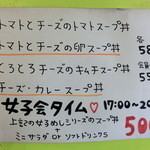 トマトとチーズのトマトスープ丼
トマトとチーズの卵スープ丼
とろとろチーズのキムチスープ丼
チーズ・カレースープ丼
各
58
女子会タイム♡ 17:00~20
上記の女子めしシリーズのスープ丼
+
ミニサラダ or ソフトドリンクS
500